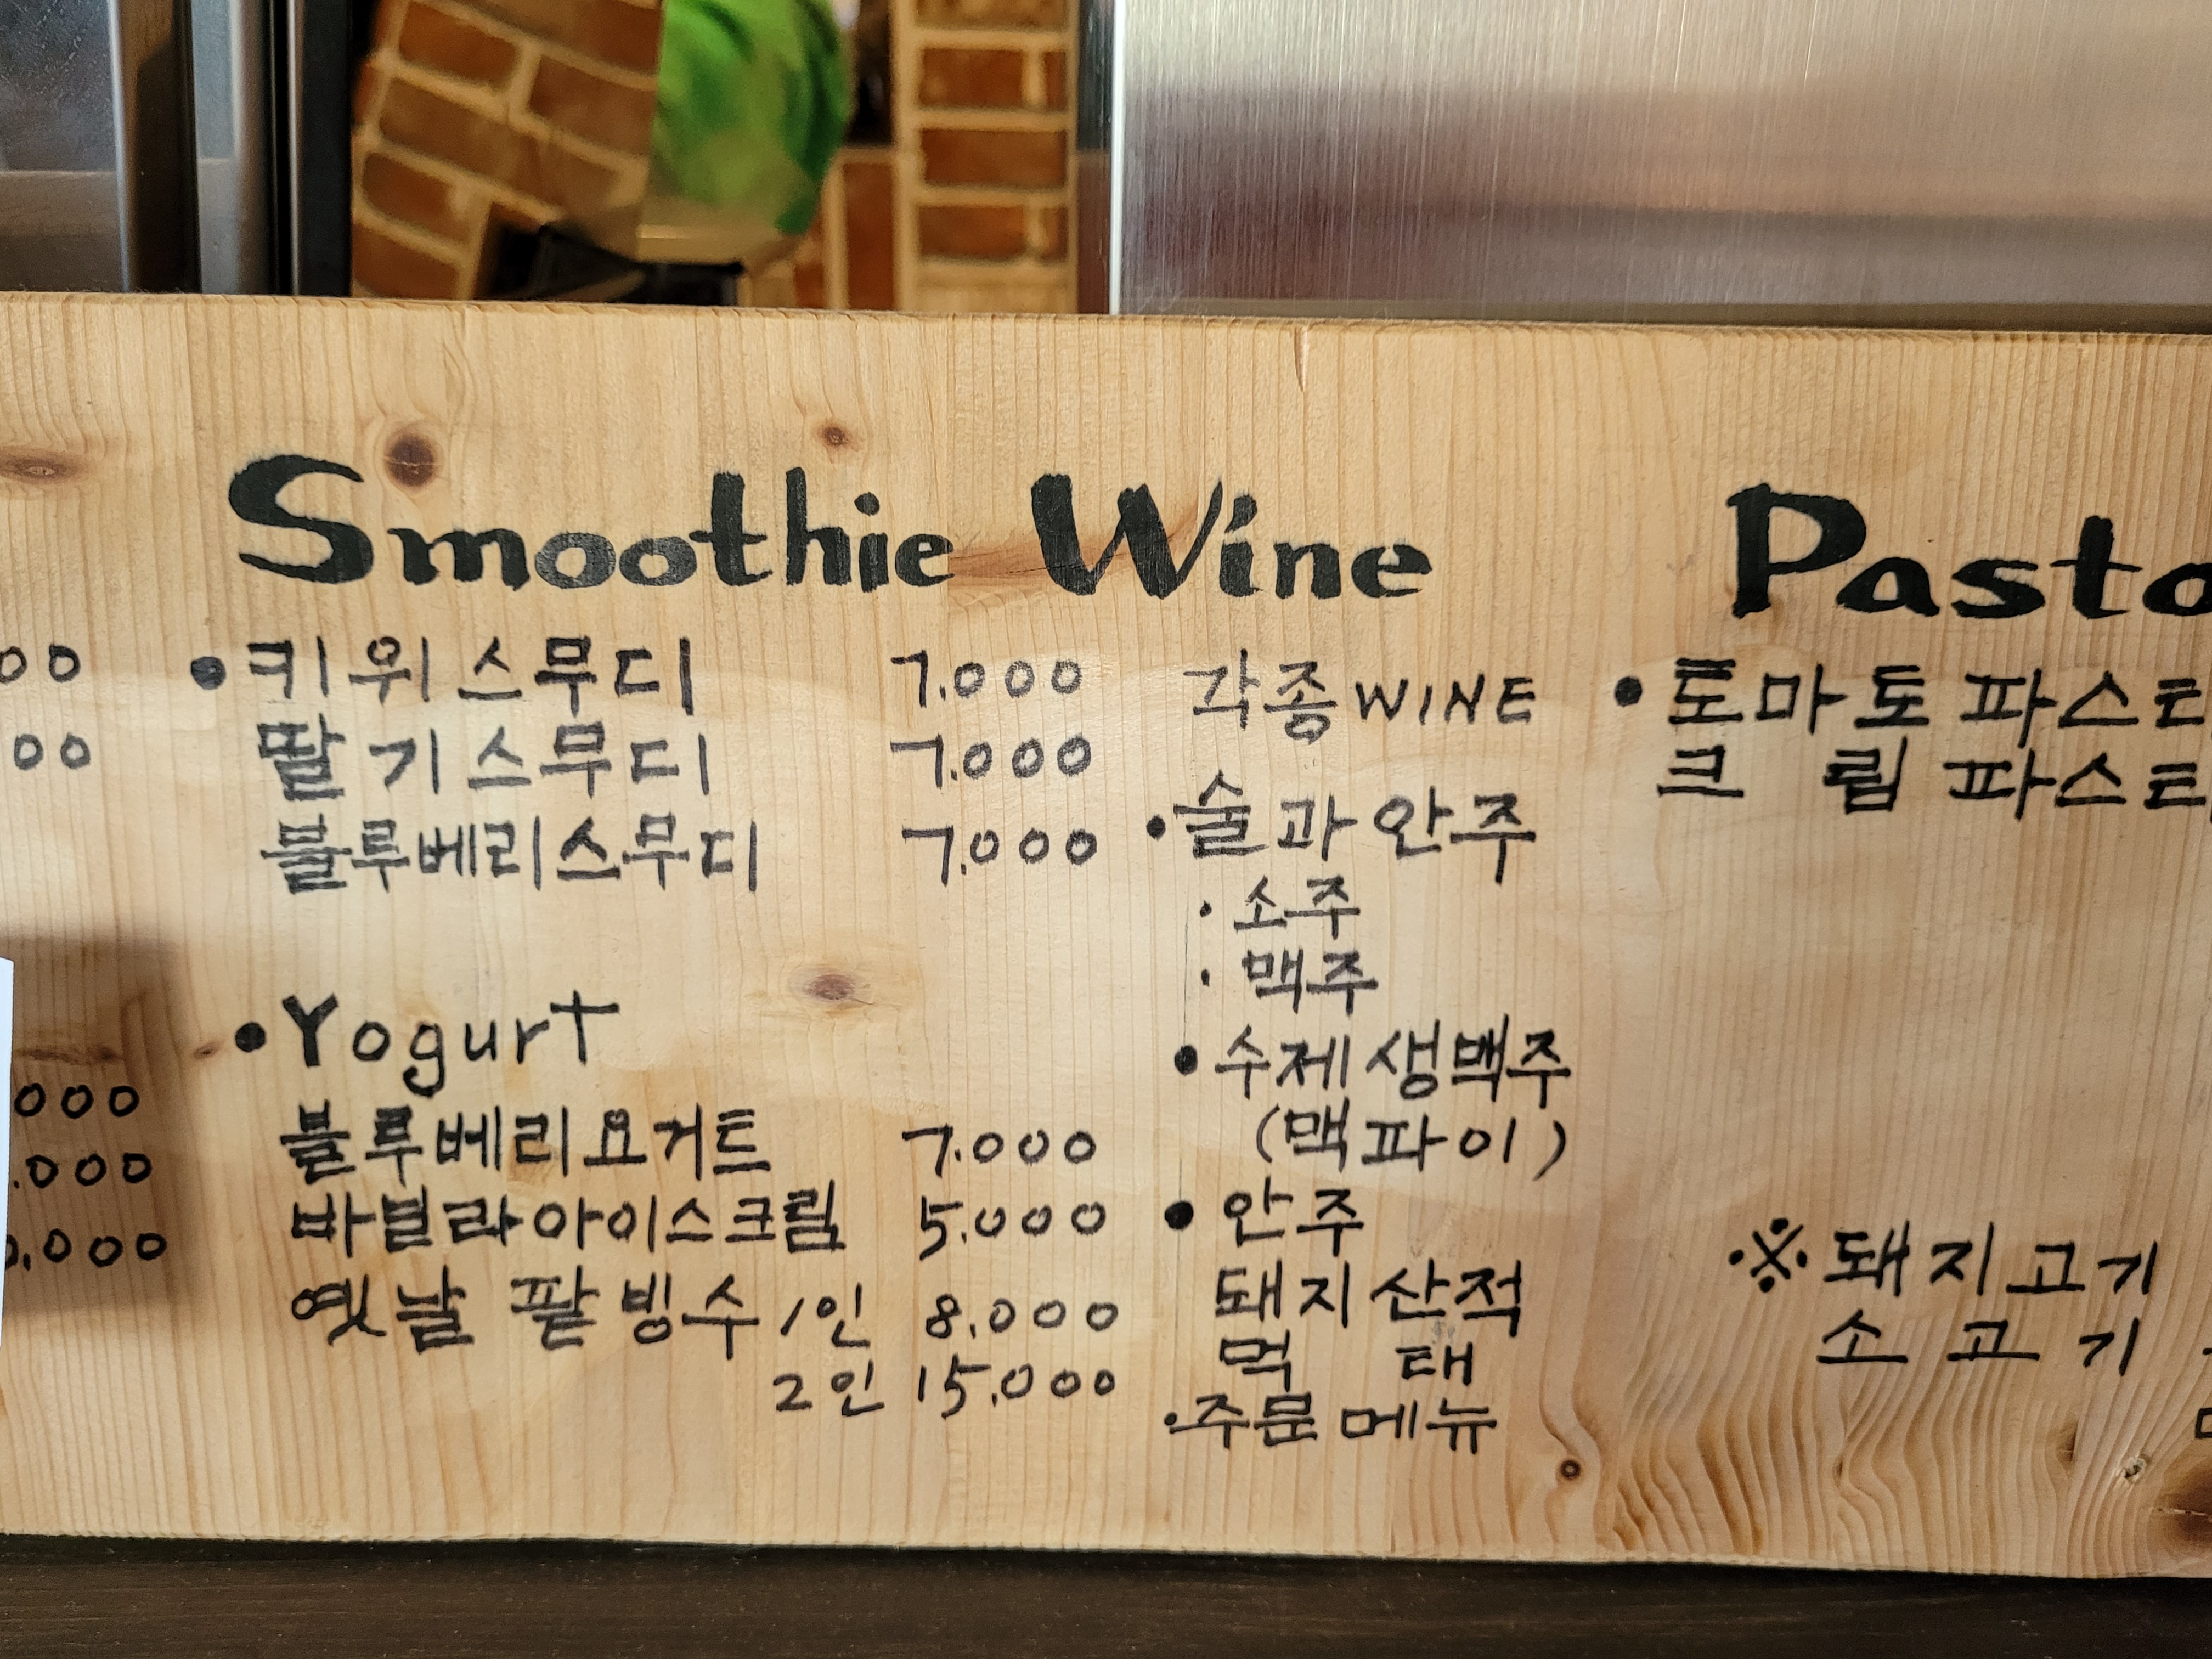 Smoothie
• 키위스무디 7.000
딸기스무디 7.000
블루베리스무디 7.000
• Yogurt
블루베리요거트 7.000
바닐라아이스크림 5.000
옛날 팥빙수 /인 8.000
2인 15.000
Wine
각종 WINE
• 술과 안주
· 소주
· 맥주
• 수제 생맥주
(맥파이)
• 안주
돼지산적
먹 태
· 주문메뉴
• 토마토 파스
크 림 파스
※ 돼지고기
소고기